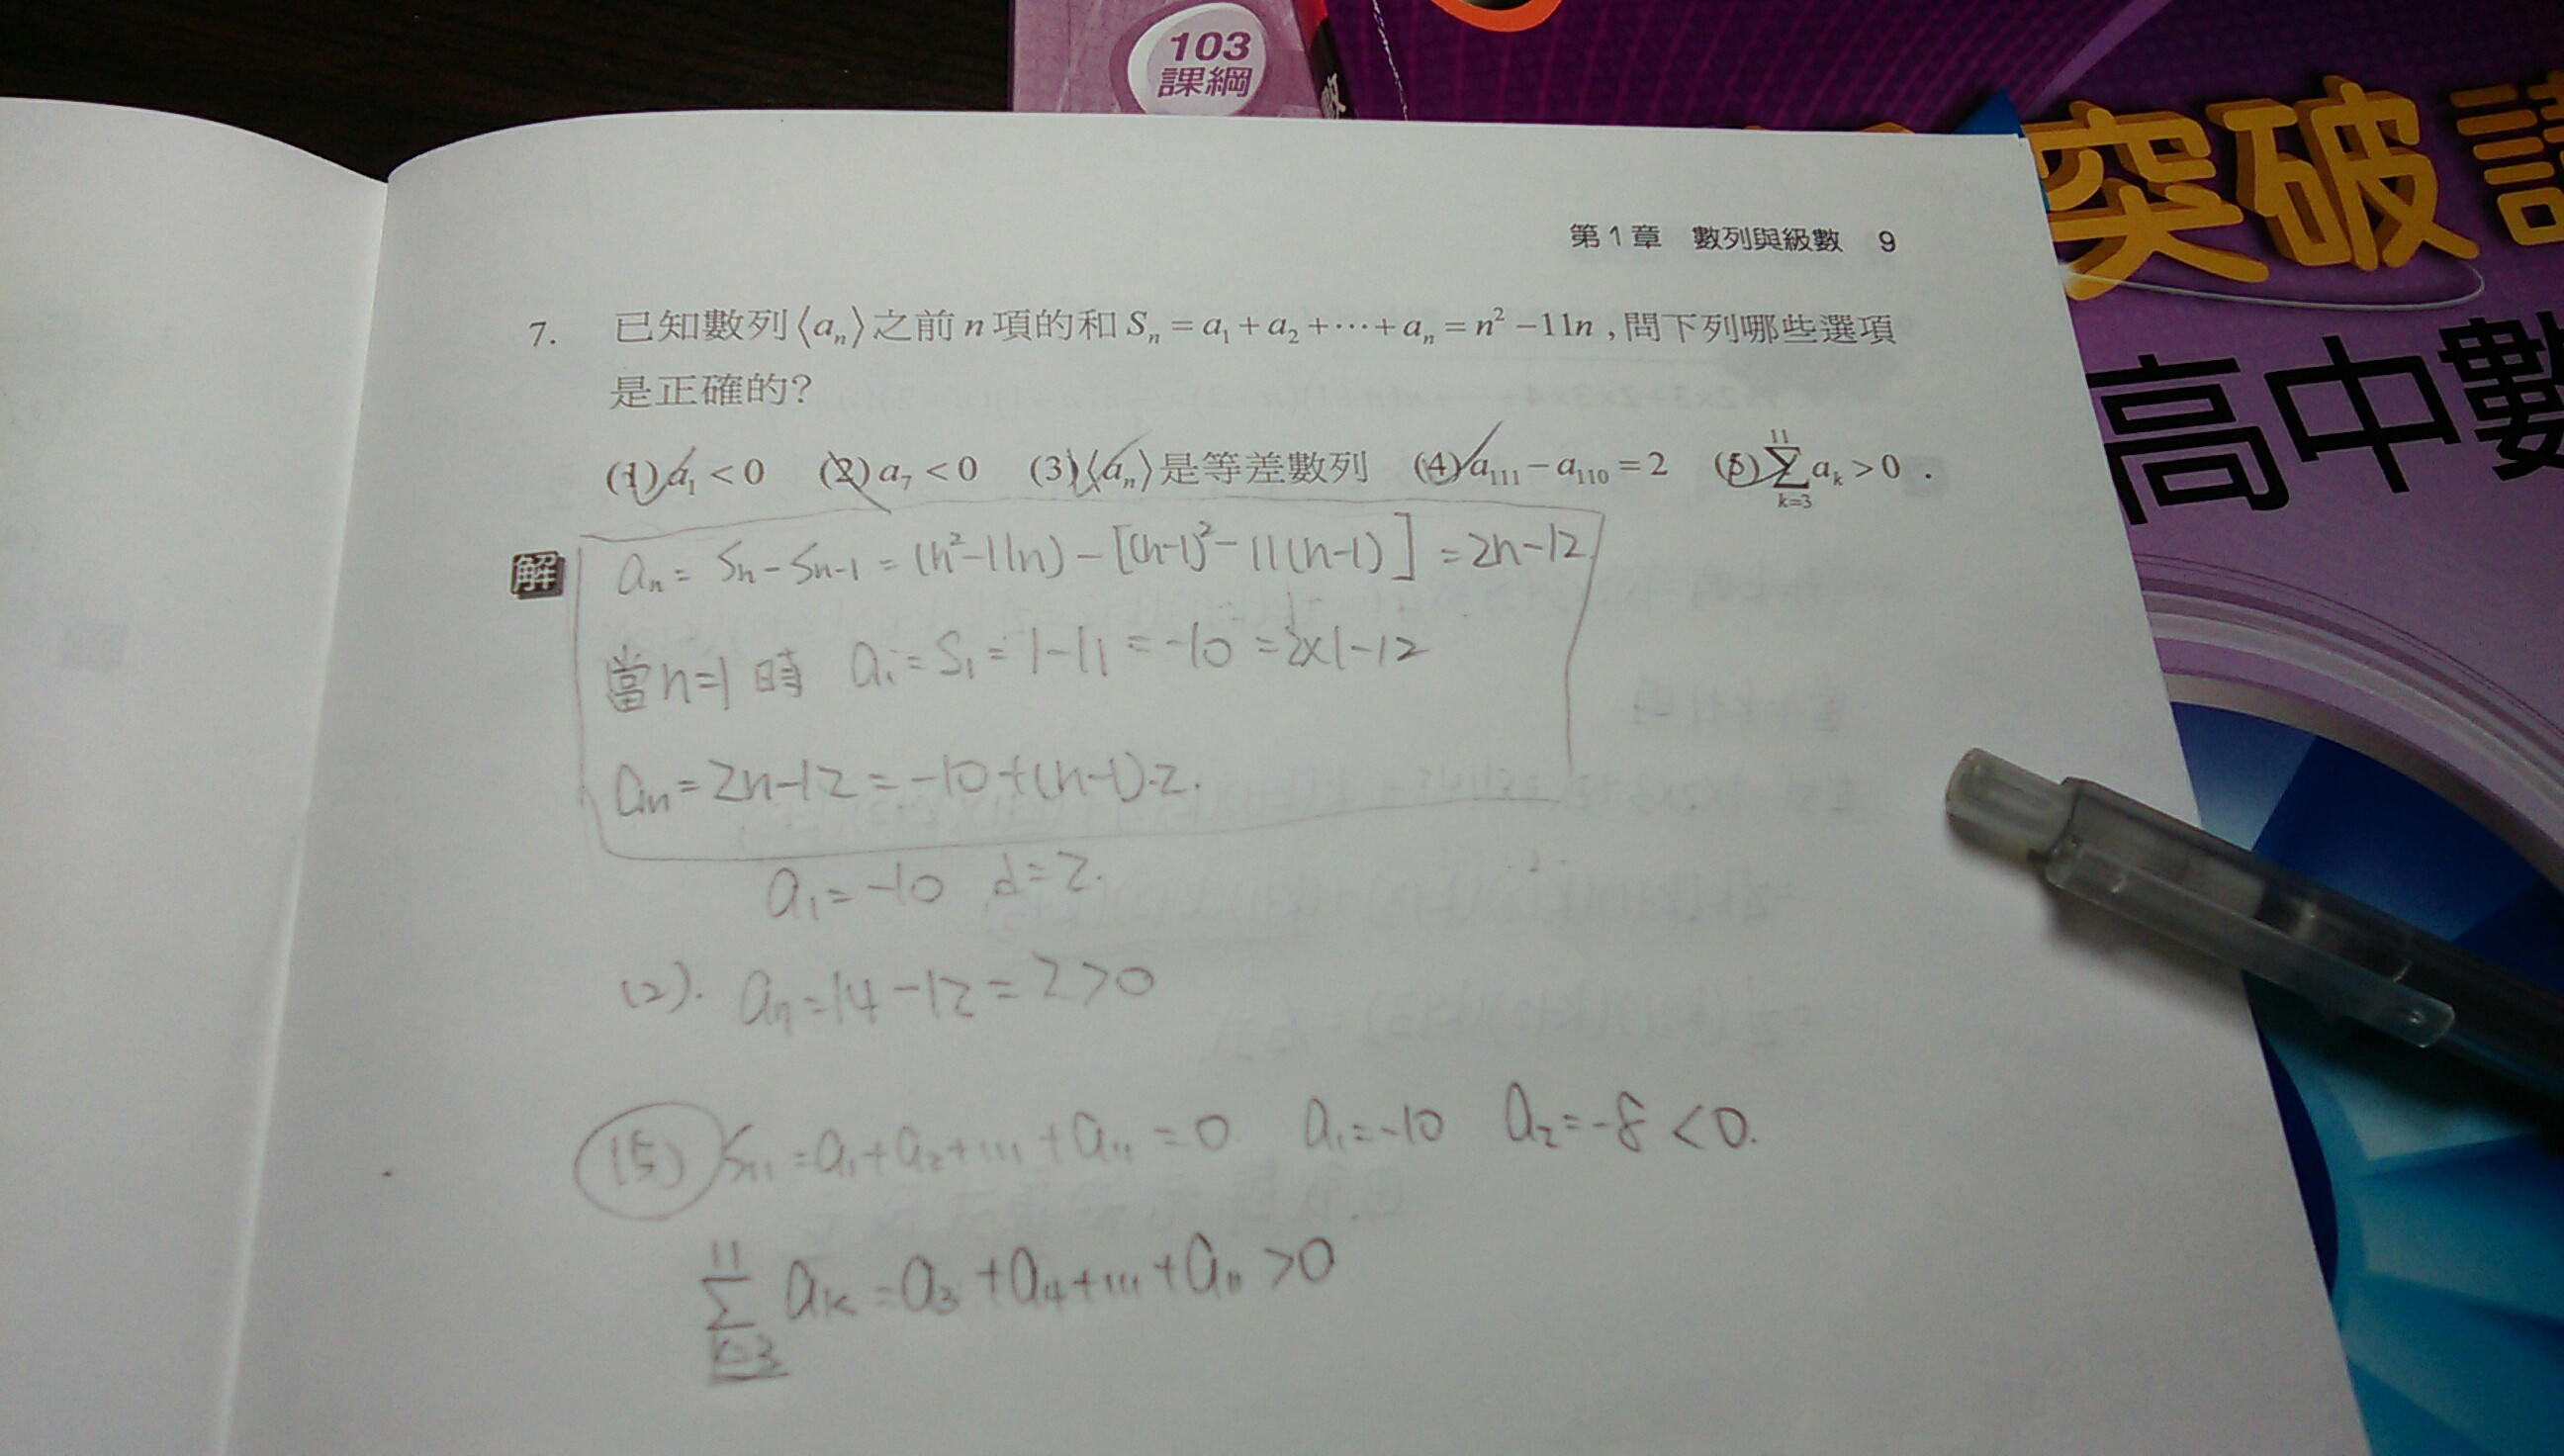 103
課綱
突破
高中數
第1章 數列與級數 9
7. 已知數列⟨aₙ⟩之前 n 項的和 Sₙ = a₁ + a₂ + ⋯ + aₙ = n² − 11n , 問下列哪些選項
是正確的?
(1) a₁ < 0 (2) a₇ < 0 (3) ⟨aₙ⟩是等差數列 (4) a₁₁₁ − a₁₁₀ = 2 (5) ∑_{k=3}^{11} aₖ > 0 .
解 aₙ = Sₙ − Sₙ₋₁ = (n² − 11n) − [(n−1)² − 11(n−1)] = 2n−12
當n=1時 a₁ = S₁ = 1−11 = −10 = 2×1−12
aₙ = 2n−12 = −10+(n−1)·2.
a₁ = −10 d=2.
(2). a₇ = 14−12 = 2 > 0
(5) S₁₁ = a₁+a₂+…+a₁₁ = 0 a₁=−10 a₂=−8 < 0.
∑_{k=3}^{11} aₖ = a₃ + a₄ + … + a₁₁ > 0